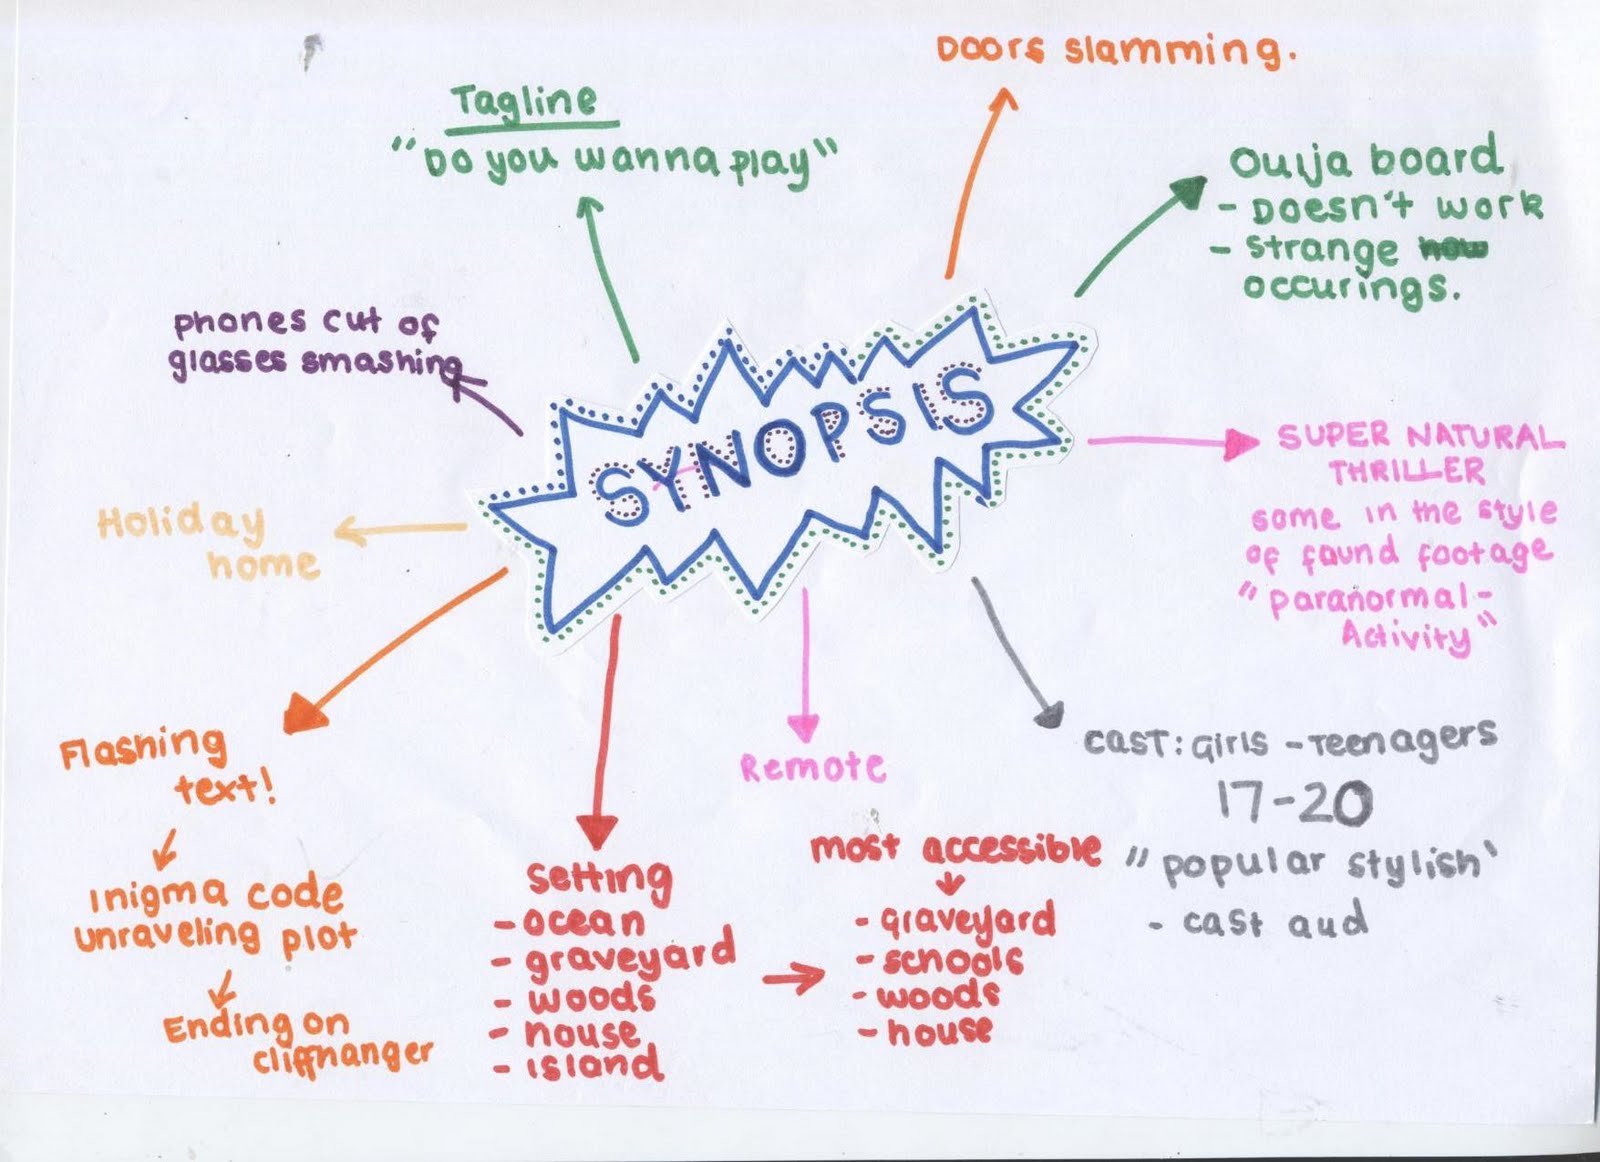 Doors slamming.
Tagline
"Do you wanna play"
Ouija board
- Doesn't work
- strange now
occurings.
phones cut of
glasses smashing
SYNOPSIS
SUPER NATURAL
THRILLER
some in the style
of found footage
"paranormal-
Activity"
Holiday
home
Flashing
text!
Inigma code
unraveling plot
Ending on
cliffhanger
setting
- ocean
- graveyard
- woods
- house
- island
Remote
most accessible
- graveyard
- schools
- woods
- house
cast: girls - Teenagers
17-20
"popular stylish'
- cast aud